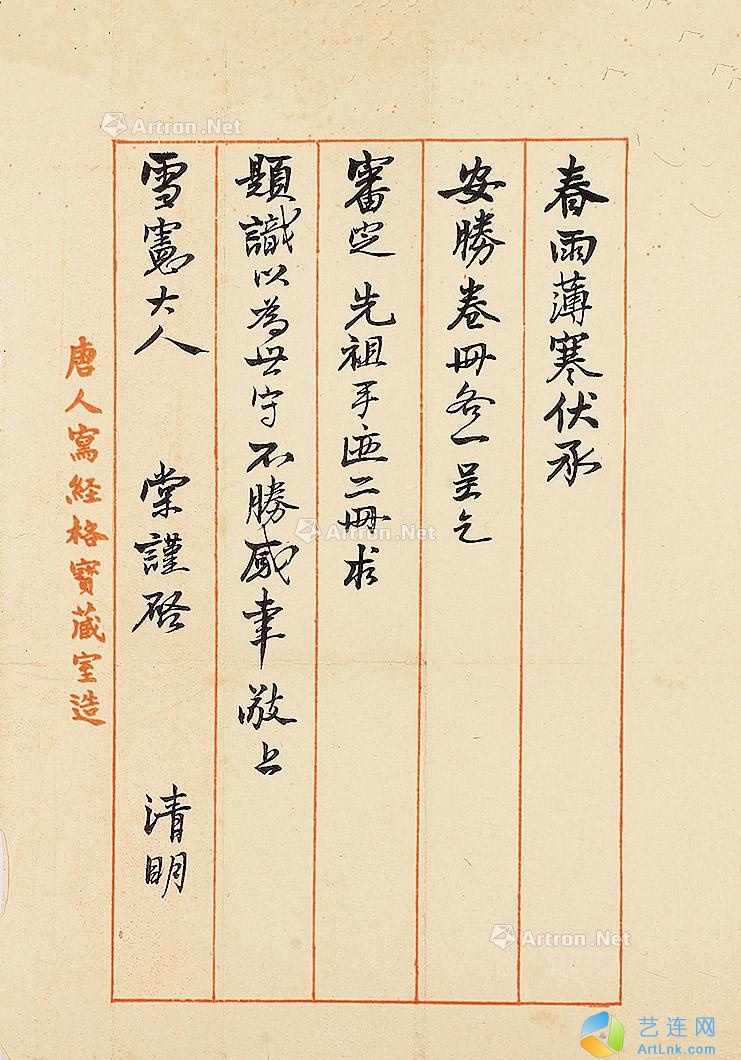 春雨薄寒伏承
安勝卷冊各一呈乞
審定 先祖手迹二冊求
題識以為世守不勝感幸 敬上
雪窻大人 棠謹啓 清明
唐人寫経格寶蔵室造
Artron.Net
Artron.Net
Artron.Net
艺连网
ArtLnk.com